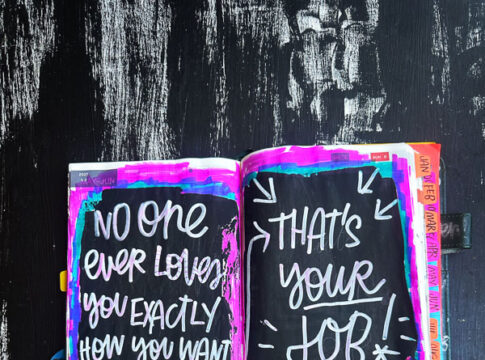 NO ONE
EVER LOVES
YOU EXACTLY
HOW YOU WANT
THAT'S
YOUR
JOB!
JAN
FEB
MAR
APR
MAY
JUN